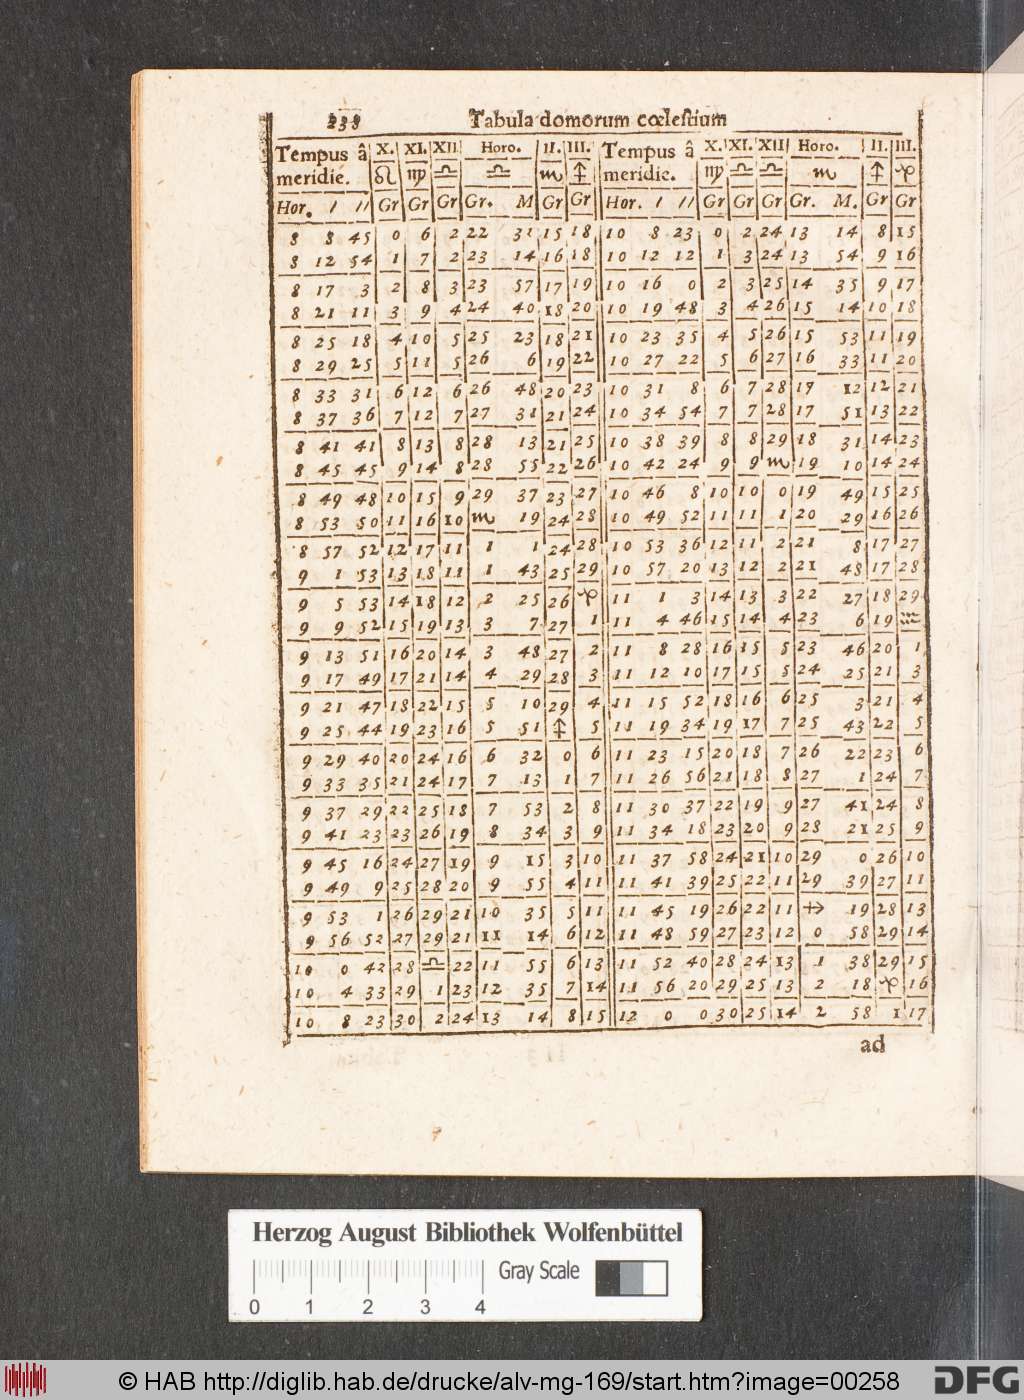 238 Tabula domorum cœlestium
Tempus â X. XI. XII Horo. II. III. Tempus â X. XI. XII Horo. II. III.
meridie. ♌ ♍ ♎ ♎ ♏ ♐ meridie. ♍ ♎ ♎ ♏ ♐ ♑
Hor. ′ ″ Gr Gr Gr Gr. M Gr Gr Hor. ′ ″ Gr Gr Gr Gr. M. Gr Gr
8 8 45 0 6 2 22 31 15 18 10 8 23 0 2 24 13 14 8 15
8 12 54 1 7 2 23 14 16 18 10 12 12 1 3 24 13 54 9 16
8 17 3 2 8 3 23 57 17 19 10 16 0 2 3 25 14 35 9 17
8 21 11 3 9 4 24 40 18 20 10 19 48 3 4 26 15 14 10 18
8 25 18 4 10 5 25 23 18 21 10 23 35 4 5 26 15 53 11 19
8 29 25 5 11 5 26 6 19 22 10 27 22 5 6 27 16 33 11 20
8 33 31 6 12 6 26 48 20 23 10 31 8 6 7 28 17 12 12 21
8 37 36 7 12 7 27 31 21 24 10 34 54 7 7 28 17 51 13 22
8 41 41 8 13 8 28 13 21 25 10 38 39 8 8 29 18 31 14 23
8 45 45 9 14 8 28 55 22 26 10 42 24 9 9 ♏ 19 10 14 24
8 49 48 10 15 9 29 37 23 27 10 46 8 10 10 0 19 49 15 25
8 53 50 11 16 10 ♏ 19 24 28 10 49 52 11 11 1 20 29 16 26
8 57 52 12 17 11 1 1 24 28 10 53 36 12 11 2 21 8 17 27
9 1 53 13 18 11 1 43 25 29 10 57 20 13 12 2 21 48 17 28
9 5 53 14 18 12 2 25 26 ♑ 11 1 3 14 13 3 22 27 18 29
9 9 52 15 19 13 3 7 27 1 11 4 46 15 14 4 23 6 19 ♒
9 13 51 16 20 14 3 48 27 2 11 8 28 16 15 5 23 46 20 1
9 17 49 17 21 14 4 29 28 3 11 12 10 17 15 5 24 25 21 3
9 21 47 18 22 15 5 10 29 4 11 15 52 18 16 6 25 3 21 4
9 25 44 19 23 16 5 51 ♐ 5 11 19 34 19 17 7 25 43 22 5
9 29 40 20 24 16 6 32 0 6 11 23 15 20 18 7 26 22 23 6
9 33 35 21 24 17 7 13 1 7 11 26 56 21 18 8 27 1 24 7
9 37 29 22 25 18 7 53 2 8 11 30 37 22 19 9 27 41 24 8
9 41 23 23 26 19 8 34 3 9 11 34 18 23 20 9 28 21 25 9
9 45 16 24 27 19 9 15 3 10 11 37 58 24 21 10 29 0 26 10
9 49 9 25 28 20 9 55 4 11 11 41 39 25 22 11 29 39 27 11
9 53 1 26 29 21 10 35 5 11 11 45 19 26 22 11 ♐ 19 28 13
9 56 52 27 29 21 11 14 6 12 11 48 59 27 23 12 0 58 29 14
10 0 42 28 ♎ 22 11 55 6 13 11 52 40 28 24 13 1 38 29 15
10 4 33 29 1 23 12 35 7 14 11 56 20 29 25 13 2 18 ♑ 16
10 8 23 30 2 24 13 14 8 15 12 0 0 30 25 14 2 58 1 17
ad
Herzog August Bibliothek Wolfenbüttel
0 1 2 3 4 Gray Scale
© HAB http://diglib.hab.de/drucke/alv-mg-169/start.htm?image=00258 DFG